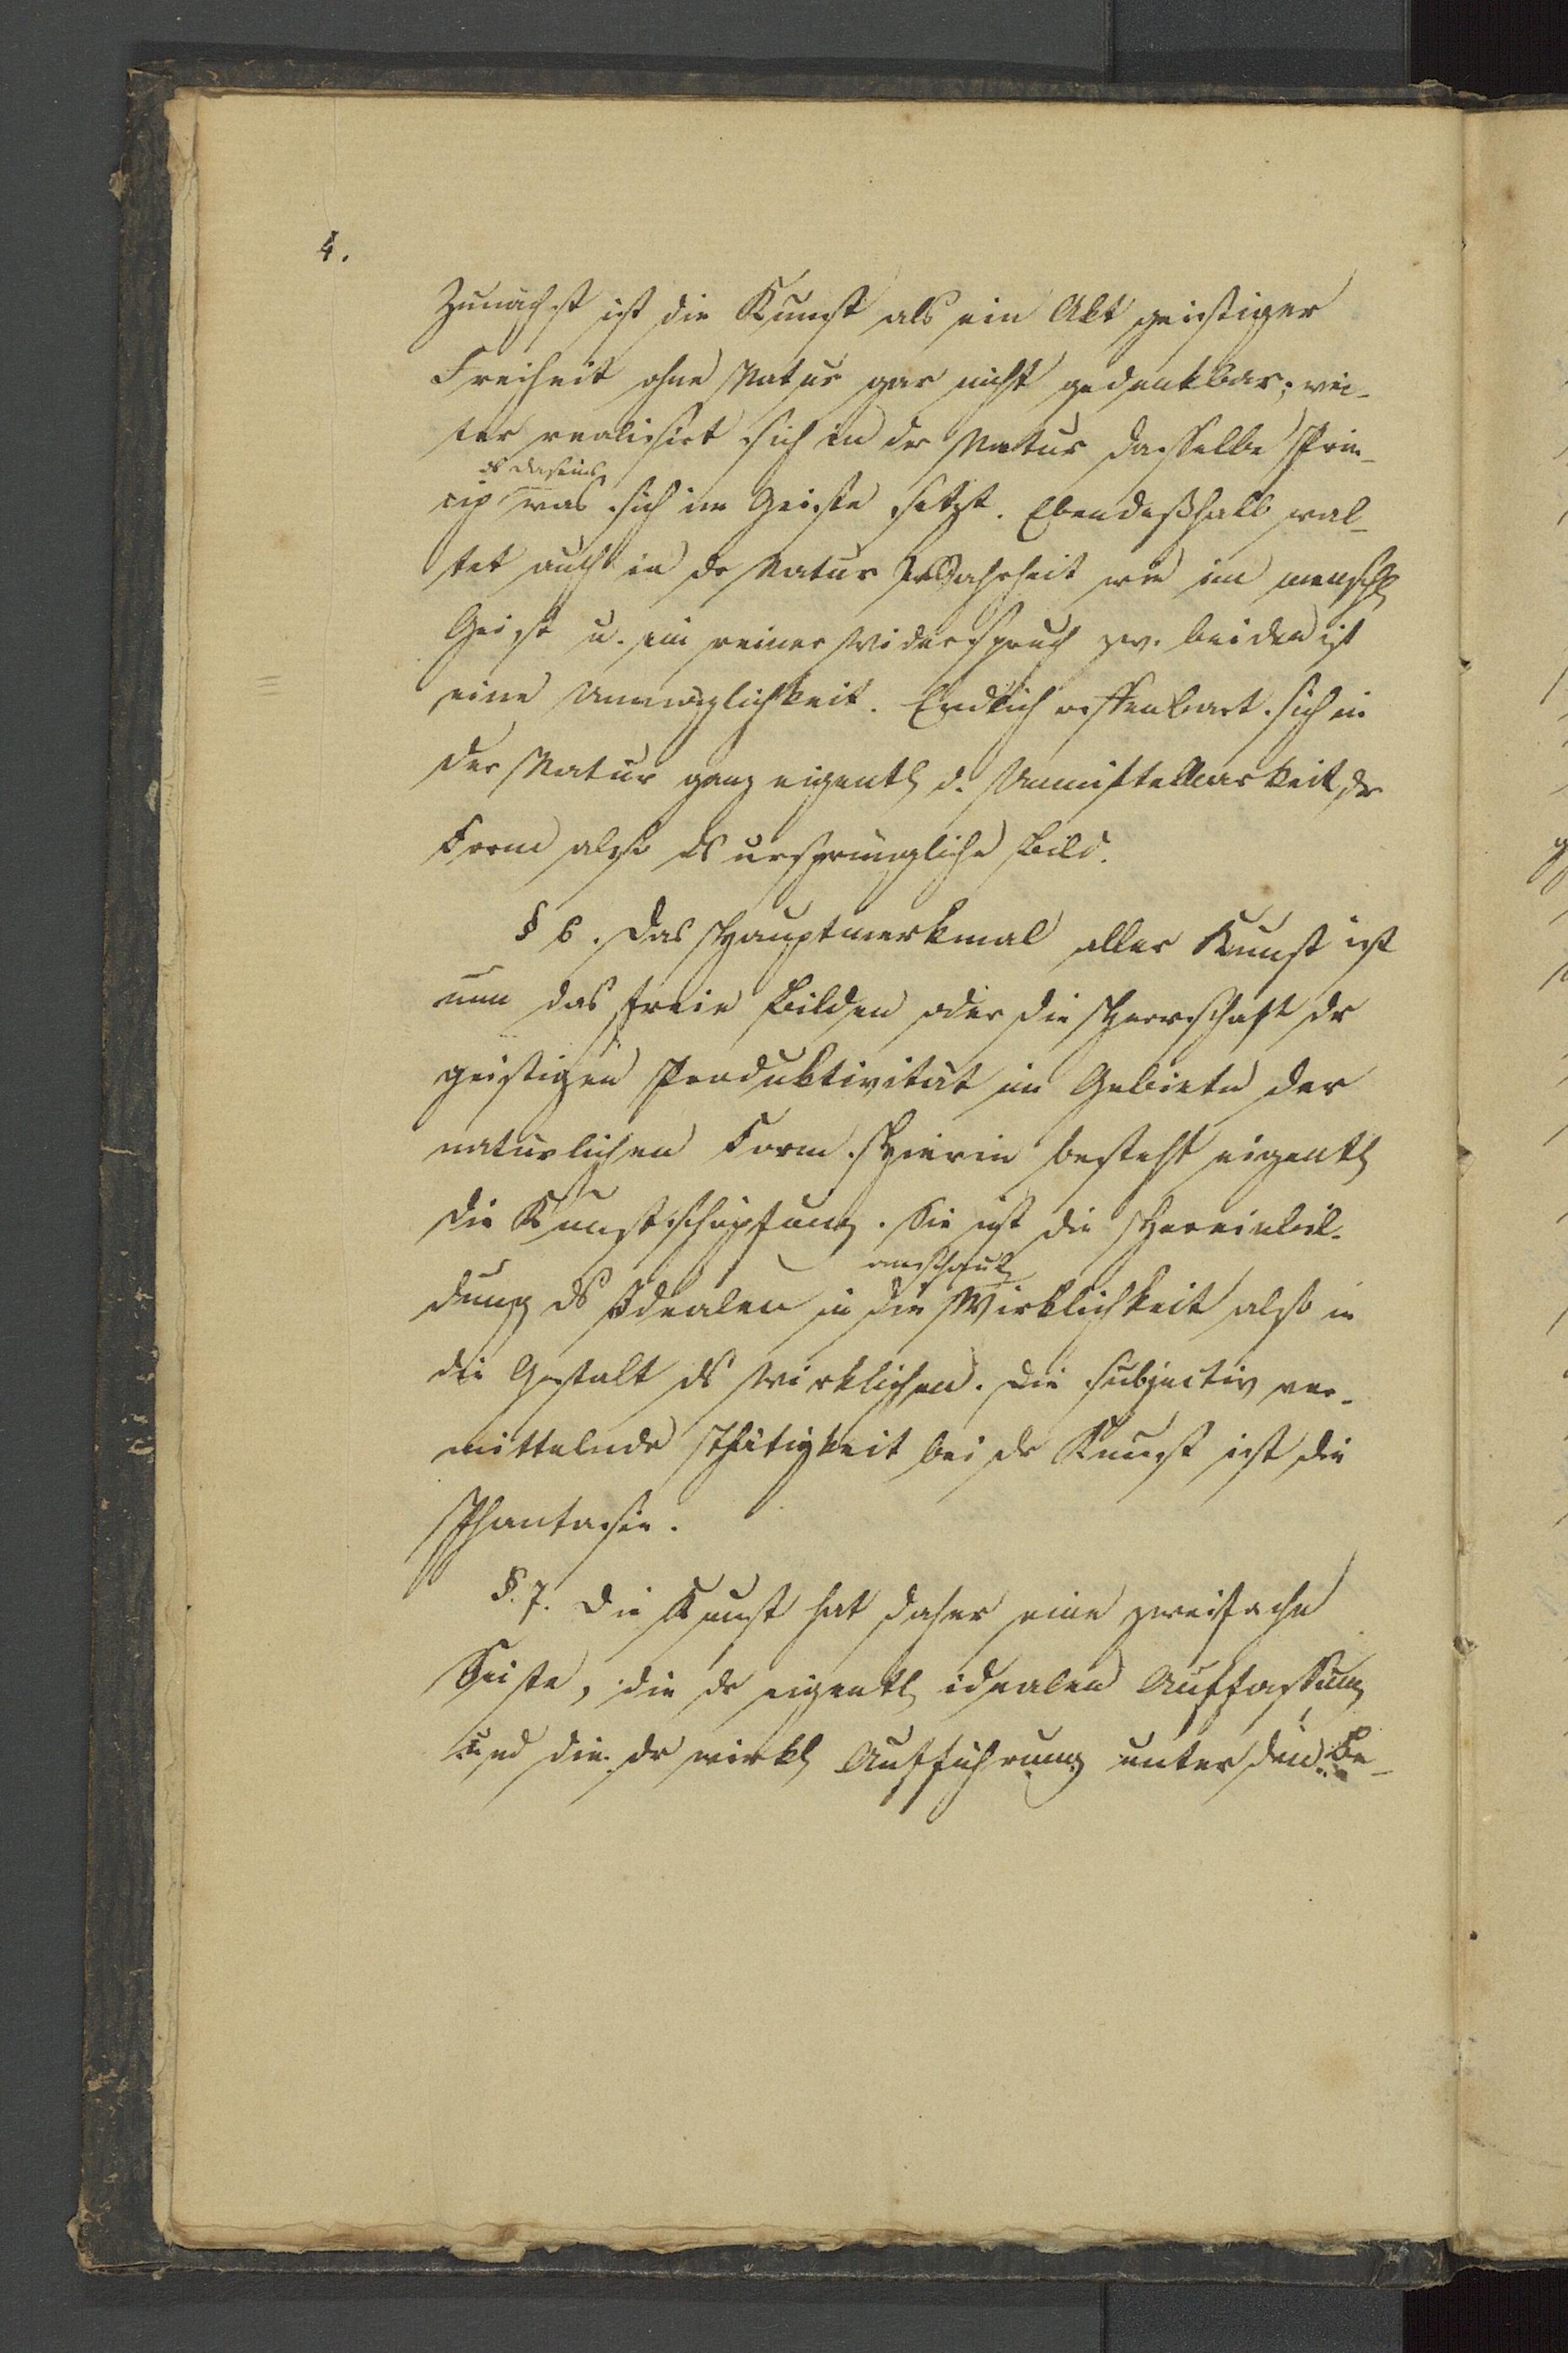 4.
Zunächst ist die Kunst als ein Akt geistiger
Freiheit ohne Natur gar nicht gedenkbar; wei-
ter realisirt sich in der Natur dasselbe Prin-
ds Daseins
cip was sich im Geiste setzt. Ebendeßhalb wal-
tet auch in dr Natur Wahrheit wie im menschl
Geiste u. ein reiner Widerspruch zw. beiden ist
eine Unmöglichkeit. Endlich offenbart sich in
der Natur ganz eigentl d. Unmittelbarkeit dr
Form also ds ursprüngliche Bild.
§ 6. Das Hauptmerkmal aller Kunst ist
nun das freie Bilden oder die Herrschaft dr
geistigen Produktivität im Gebiete der
natürlichen Form. Hierin besteht eigentl
die Kunstschöpfung. Sie ist die Hereinbil-
anschaul
dung ds Idealen in die Wirklichkeit also in
die Gestalt ds Wirklichen. Die subjectiv ver-
mittelnde Thätigkeit bei dr Kunst ist die
Phantasie.
§. 7. Die Kunst hat daher eine zweifache
Seite, die dr eigentl idealen Auffassung
und die dr wirkl Aufführung unter den Be-